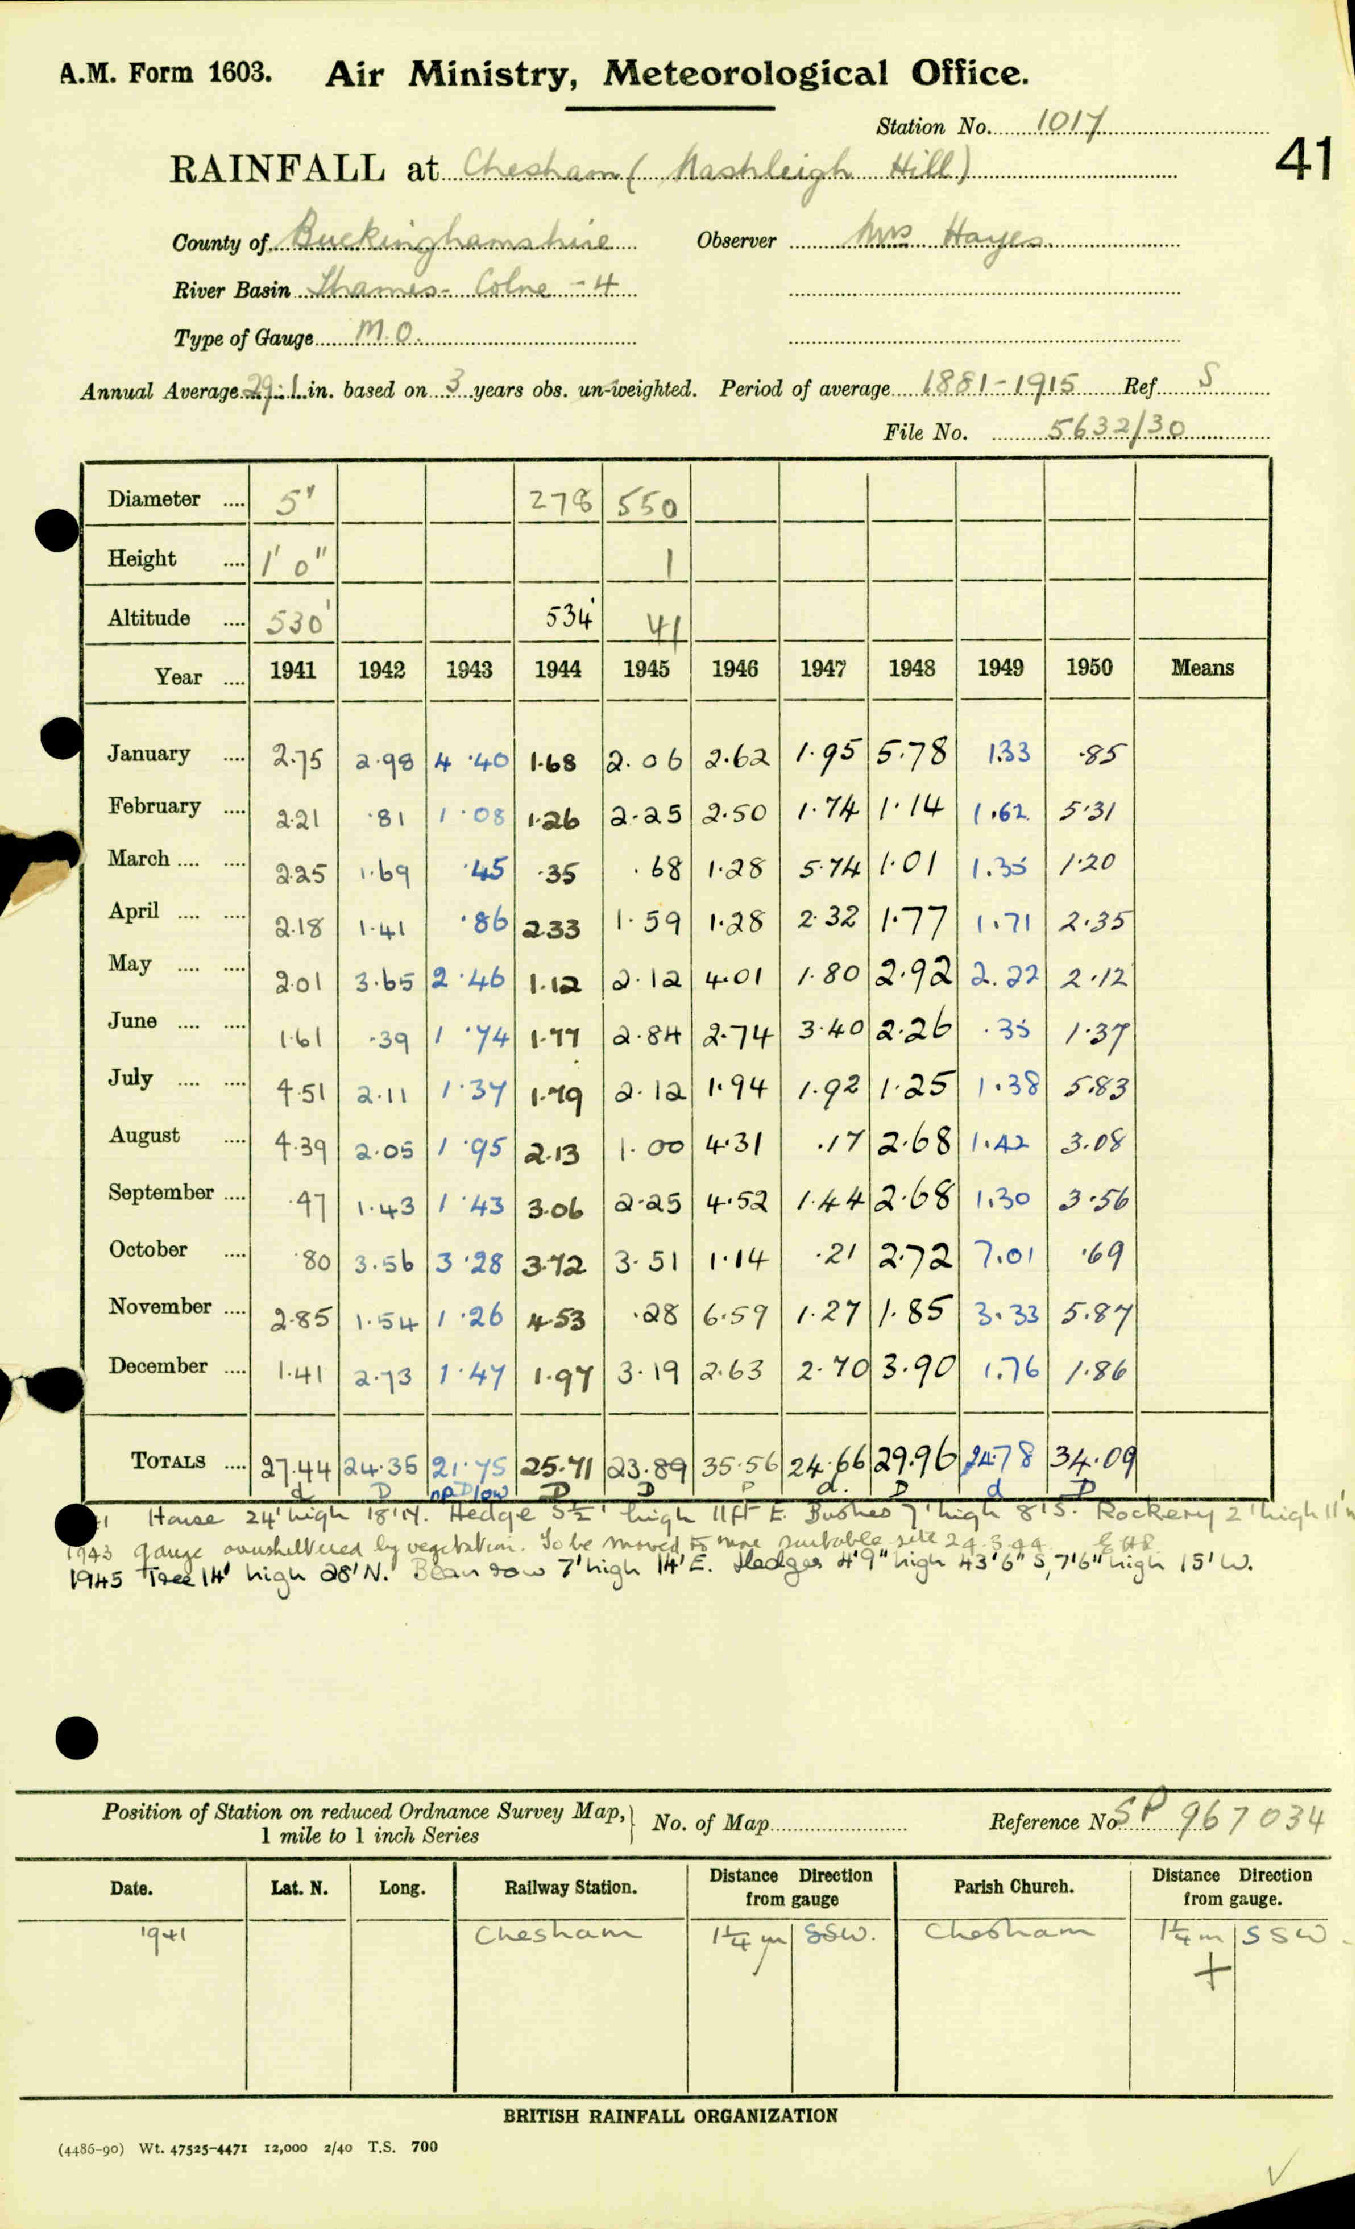 A.M. Form 1603. Air Ministry, Meteorological Office.
Station No. 1017
41
RAINFALL at Chesham (Nashleigh Hill)
County of Buckinghamshire Observer Mrs Hayes
River Basin Thames - Colne - 4
Type of Gauge M.O.
Annual Average 29.1 in. based on 3 years obs. un-weighted. Period of average 1881-1915 Ref S
File No. 5632/30
Diameter .... 5" 278 550
Height .... 1' 0" 1
Altitude .... 530' 534' 41
Year .... 1941 1942 1943 1944 1945 1946 1947 1948 1949 1950 Means
January .... 2.75 2.98 4.40 1.68 2.06 2.62 1.95 5.78 1.33 .85
February .... 2.21 .81 1.08 1.26 2.25 2.50 1.74 1.14 1.62 5.31
March .... .... 2.25 1.69 .45 .35 .68 1.28 5.74 1.01 1.35 1.20
April .... .... 2.18 1.41 .86 2.33 1.59 1.28 2.32 1.77 1.71 2.35
May .... .... 2.01 3.65 2.46 1.12 2.12 4.01 1.80 2.92 2.22 2.12
June .... .... 1.61 .39 1.74 1.77 2.84 2.74 3.40 2.26 .35 1.37
July .... .... 4.51 2.11 1.37 1.79 2.12 1.94 1.92 1.25 1.38 5.83
August .... 4.39 2.05 1.95 2.13 1.00 4.31 .17 2.68 1.42 3.08
September .... .47 1.43 1.43 3.06 2.25 4.52 1.44 2.68 1.30 3.56
October .... .80 3.56 3.28 3.72 3.51 1.14 .21 2.72 7.01 .69
November .... 2.85 1.54 1.26 4.53 .28 6.59 1.27 1.85 3.33 5.87
December .... 1.41 2.73 1.47 1.97 3.19 2.63 2.70 3.90 1.76 1.86
TOTALS .... 27.44 24.35 21.75 25.71 23.89 35.56 24.66 29.96 24.78 34.09
d D D low D D P d. D d D
House 24' high 18'N. Hedge 5½' high 11ft E. Bushes 7' high 8'S. Rockery 2' high 11'
1943 gauge oversheltered by vegetation. To be moved to more suitable site 24.3.44
1945 Tree 14' high 28'N. Bean row 7' high 14'E. Hedges 4'9" high 43'6" S, 7'6" high 15'W.
Position of Station on reduced Ordnance Survey Map, 1 mile to 1 inch Series No. of Map Reference No SP 967034
Date. Lat. N. Long. Railway Station. Distance Direction from gauge Parish Church. Distance Direction from gauge.
1941 Chesham 1¼ m SSW. Chesham 1¼ m SSW.
+
BRITISH RAINFALL ORGANIZATION
(4486-90) Wt. 47525-4471 12,000 2/40 T.S. 700